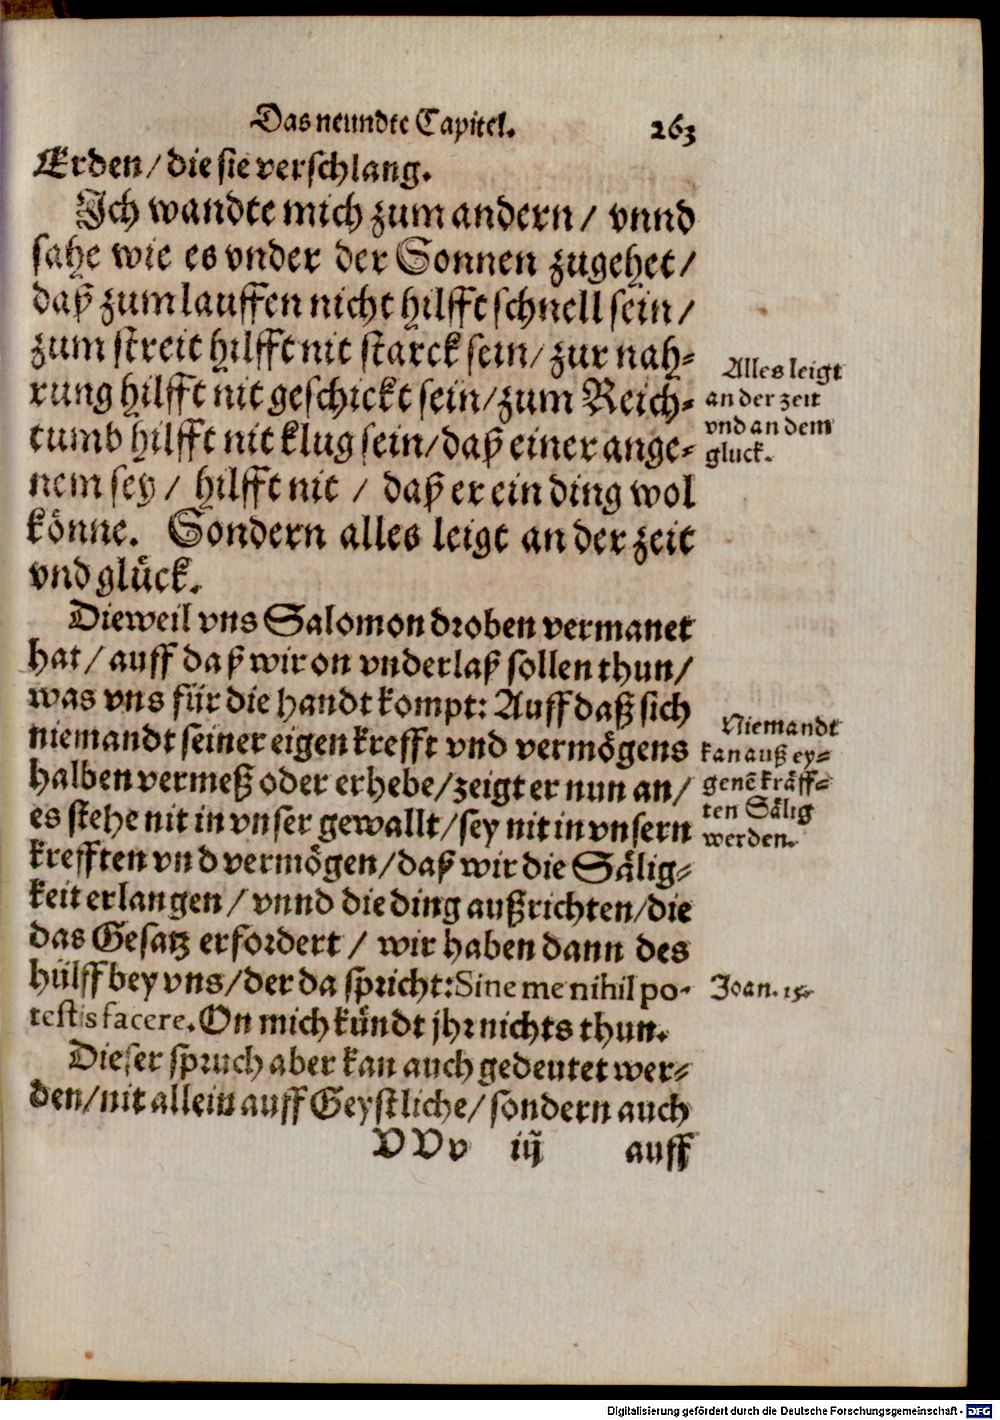 Das neundte Capitel. 263
Erden/ die sie verschlang.
Ich wandte mich zum andern/ vnnd
sahe wie es vnder der Sonnen zugehet/
daß zum lauffen nicht hilfft schnell sein/
zum streit hilfft nit starck sein/ zur nah-
rung hilfft nit geschickt sein/ zum Reich-
tumb hilfft nit klug sein/ daß einer ange-
nem sey/ hilfft nit/ daß er ein ding wol
könne. Sondern alles leigt an der zeit
vnd glück.
Alles leigt
an der zeit
vnd an dem
gluck.
Dieweil vns Salomon droben vermanet
hat/ auff daß wir on vnderlaß sollen thun/
was vns für die handt kompt: Auff daß sich
niemandt seiner eigen krefft vnd vermögens
halben vermeß oder erhebe/ zeigt er nun an/
es stehe nit in vnser gewallt/ sey nit in vnsern
krefften vnd vermögen/ daß wir die Sälig-
keit erlangen/ vnnd die ding außrichten/ die
das Gesatz erfordert/ wir haben dann des
hülff bey vns/ der da spricht: Sine me nihil po-
testis facere. On mich kündt jhr nichts thun.
Niemandt
kan auß ey-
genē kräff-
ten Sälig
werden.
Joan. 15.
Dieser spruch aber kan auch gedeutet wer-
den/ nit allein auff Geystliche/ sondern auch
VVv iij auff
Digitalisierung gefördert durch die Deutsche Forschungsgemeinschaft - DFG